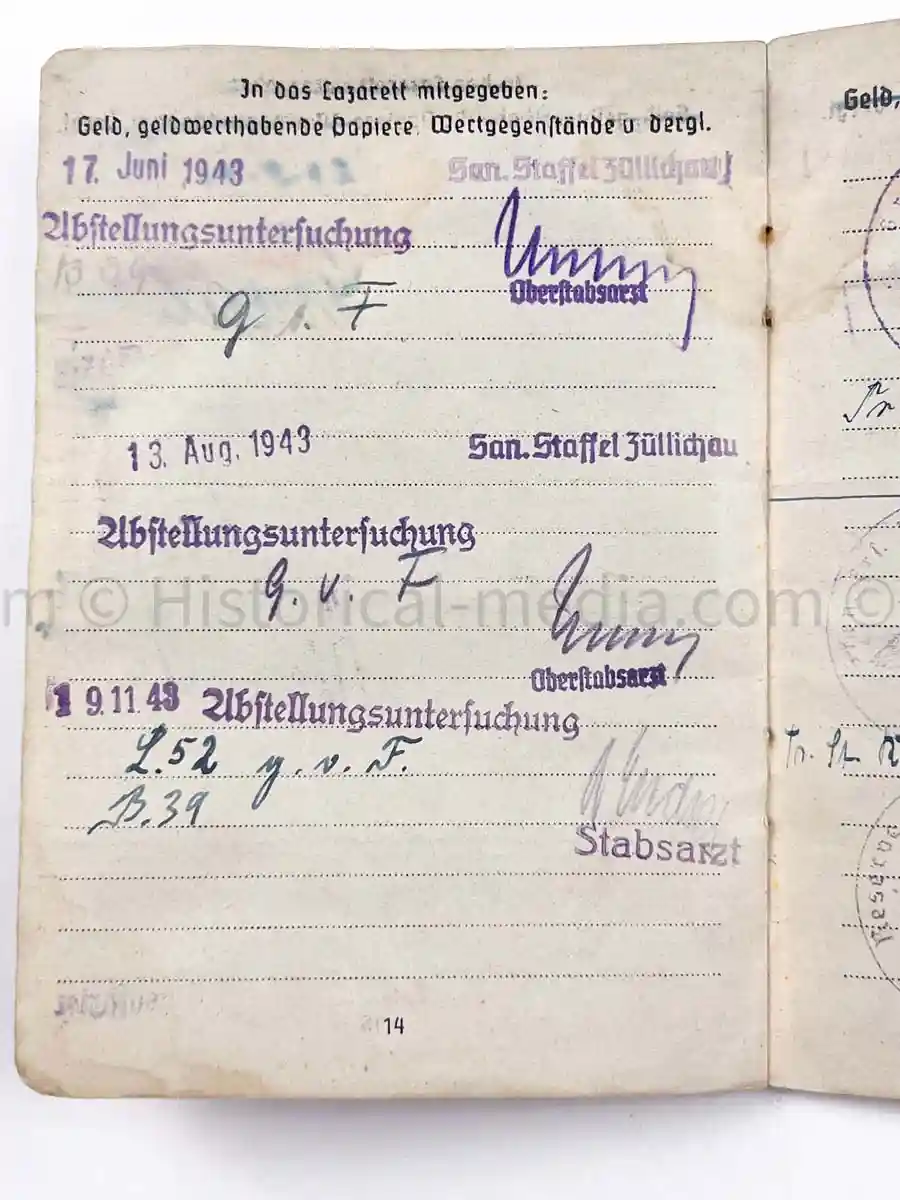 In das Lazarett mitgegeben:
Geld, geldwerthabende Papiere, Wertgegenstände u dergl.
17. Juni 1943 San. Staffel Züllichau
Abstellungsuntersuchung
Oberstabsarzt
g. v. F
13. Aug. 1943 San. Staffel Züllichau
Abstellungsuntersuchung
g. v. F
© Historical-media.com ©
Oberstabsarzt
19.11.43 Abstellungsuntersuchung
L.52 g. v. F.
B.39
Stabsarzt
14
Geld,